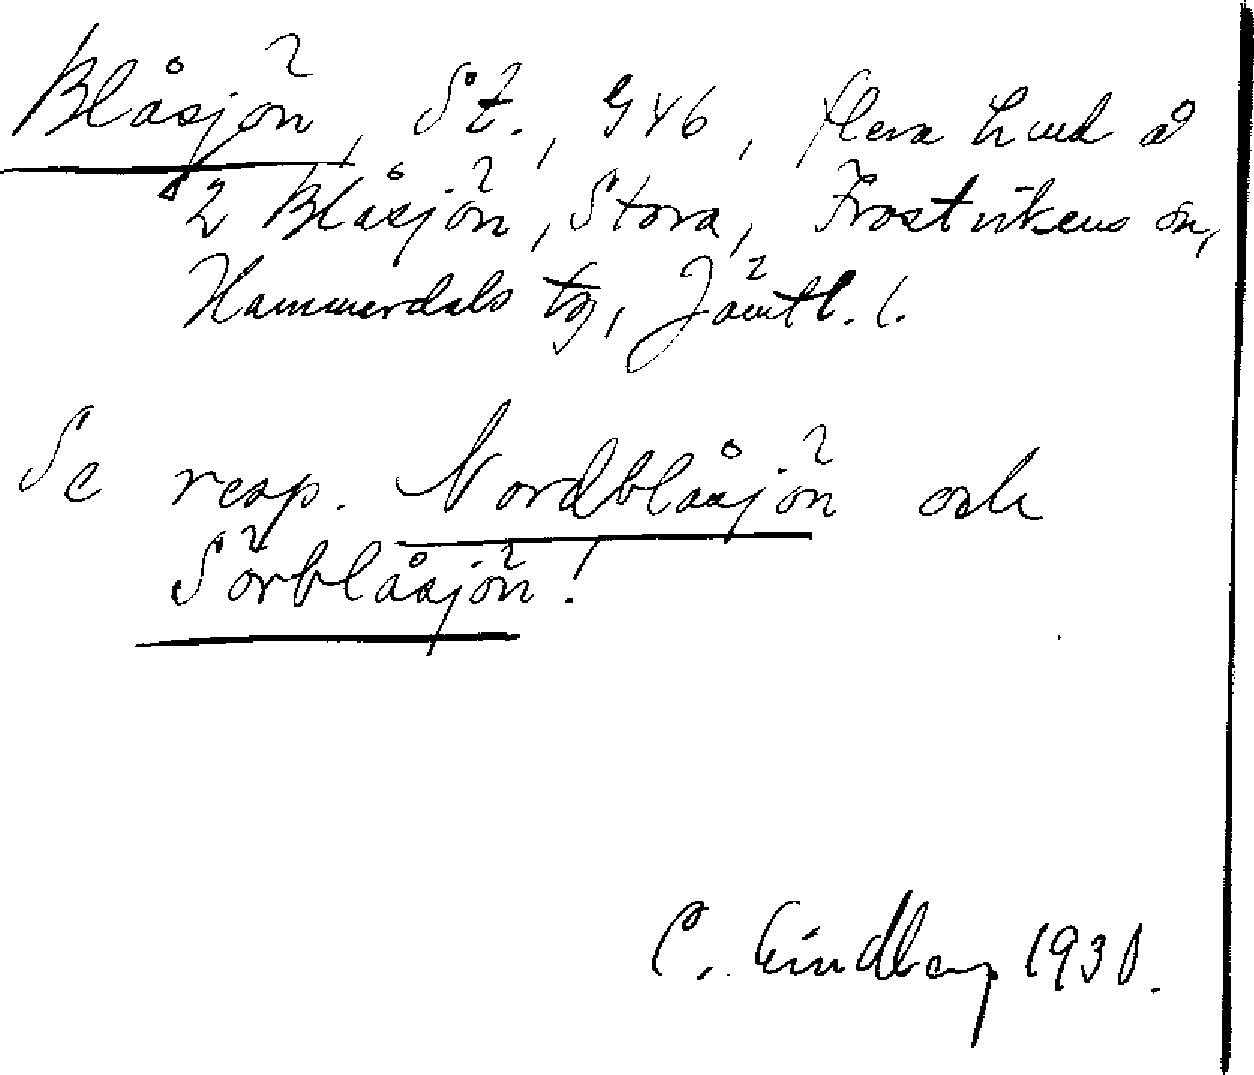 Blåsjön, St., 946, flera hmd å
2 Blåsjön, Stora, Frostvikens sn,
Hammerdals tg, Jämtl. l.
Se resp. Nordblåsjön och
Sörblåsjön!
C. Lindberg 1930.